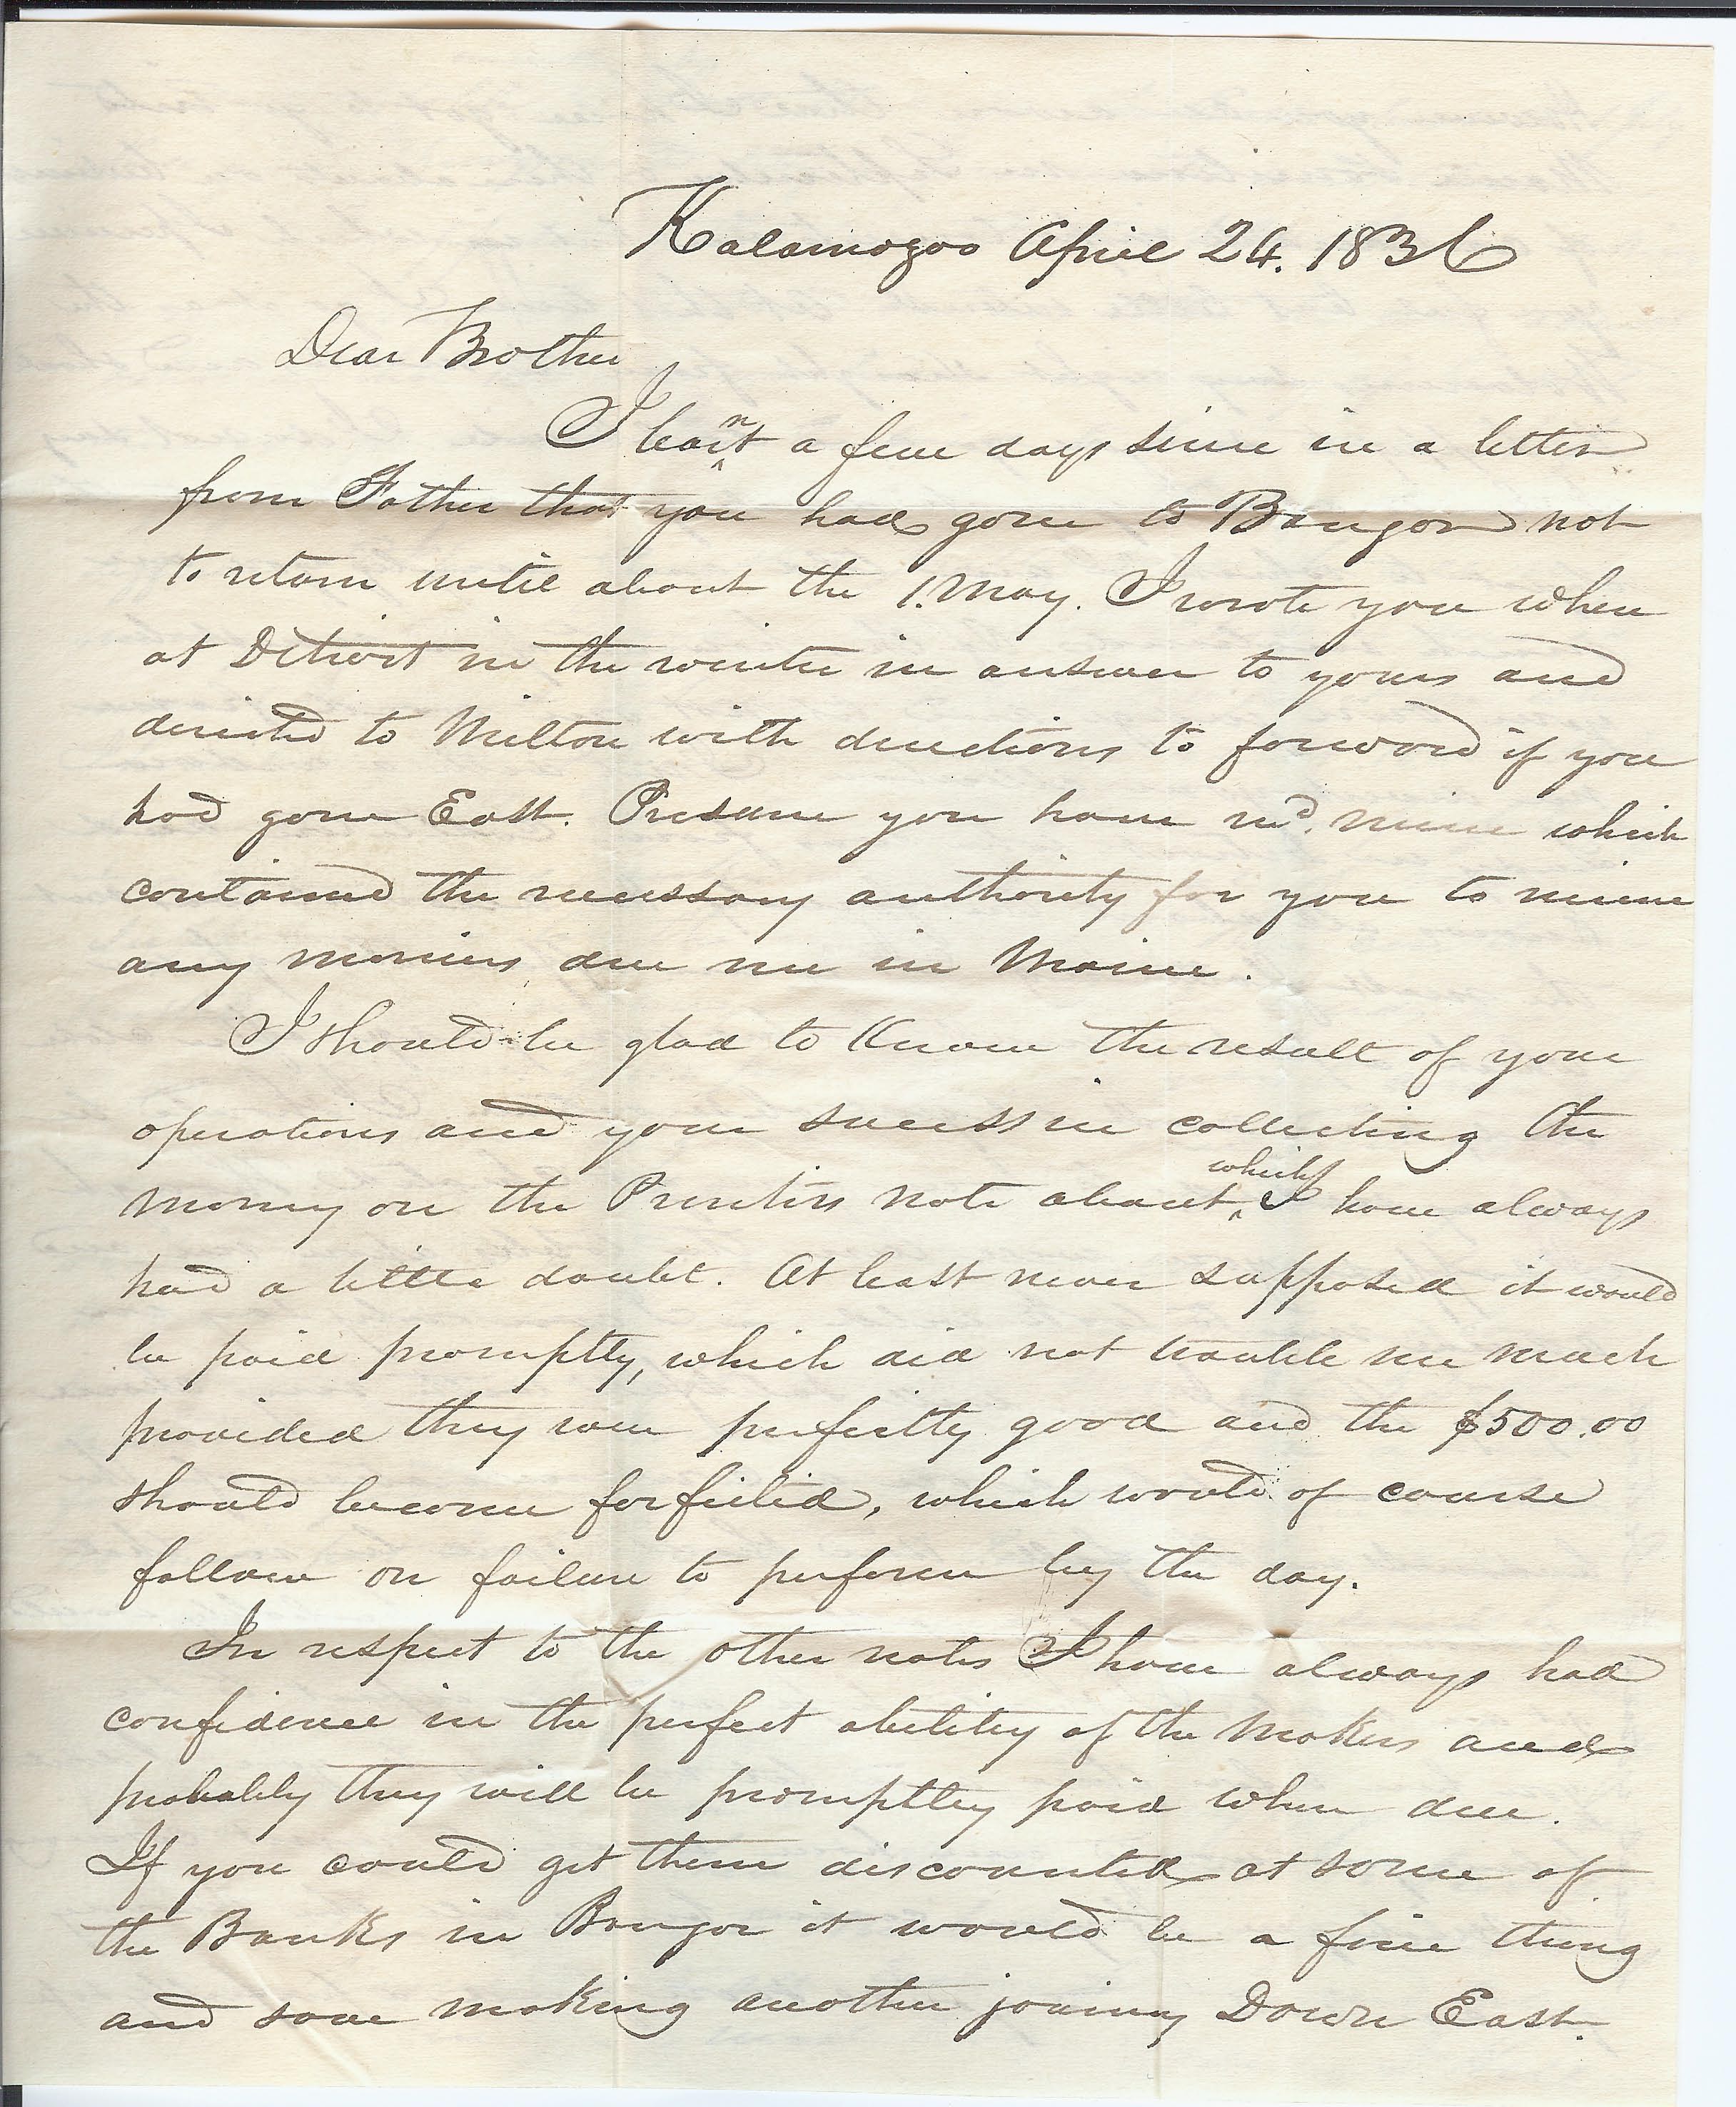 Kalamazoo April 24. 1836
Dear Brother
I learnt a few days since in a letter
from Father that you had gone to Bangor not
to return until about the 1. May. I wrote you when
at Detroit in the winter in answer to yours and
directed to Milton with directions to forward if you
had gone East. Presume you have recd. mine which
contained the necessary authority for you to receive
any monies due me in Maine.
I should be glad to Know the result of your
operations and your success in collecting the
money on the Prentiss note about which I have always
had a little doubt. At least never supposed it would
be paid promptly, which did not trouble me much
provided they were perfectly good and the $500.00
should become forfeited, which would of course
follow on failure to perform by the day.
In respect to the other notes I have always had
confidence in the perfect ability of the Makers and
probably they will be promptly paid when due.
If you could get them discounted at some of
the Banks in Bangor it would be a fine thing
and save making another journey Down East.